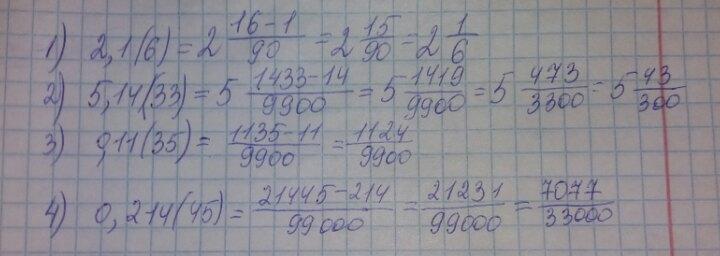 1) 2,1(6) = 2 16-1/90 = 2 15/90 = 2 1/6
2) 5,14(33) = 5 1433-14/9900 = 5 1419/9900 = 5 473/3300 = 5 43/300
3) 0,11(35) = 1135-11/9900 = 1124/9900
4) 0,214(45) = 21445-214/99000 = 21231/99000 = 7077/33000